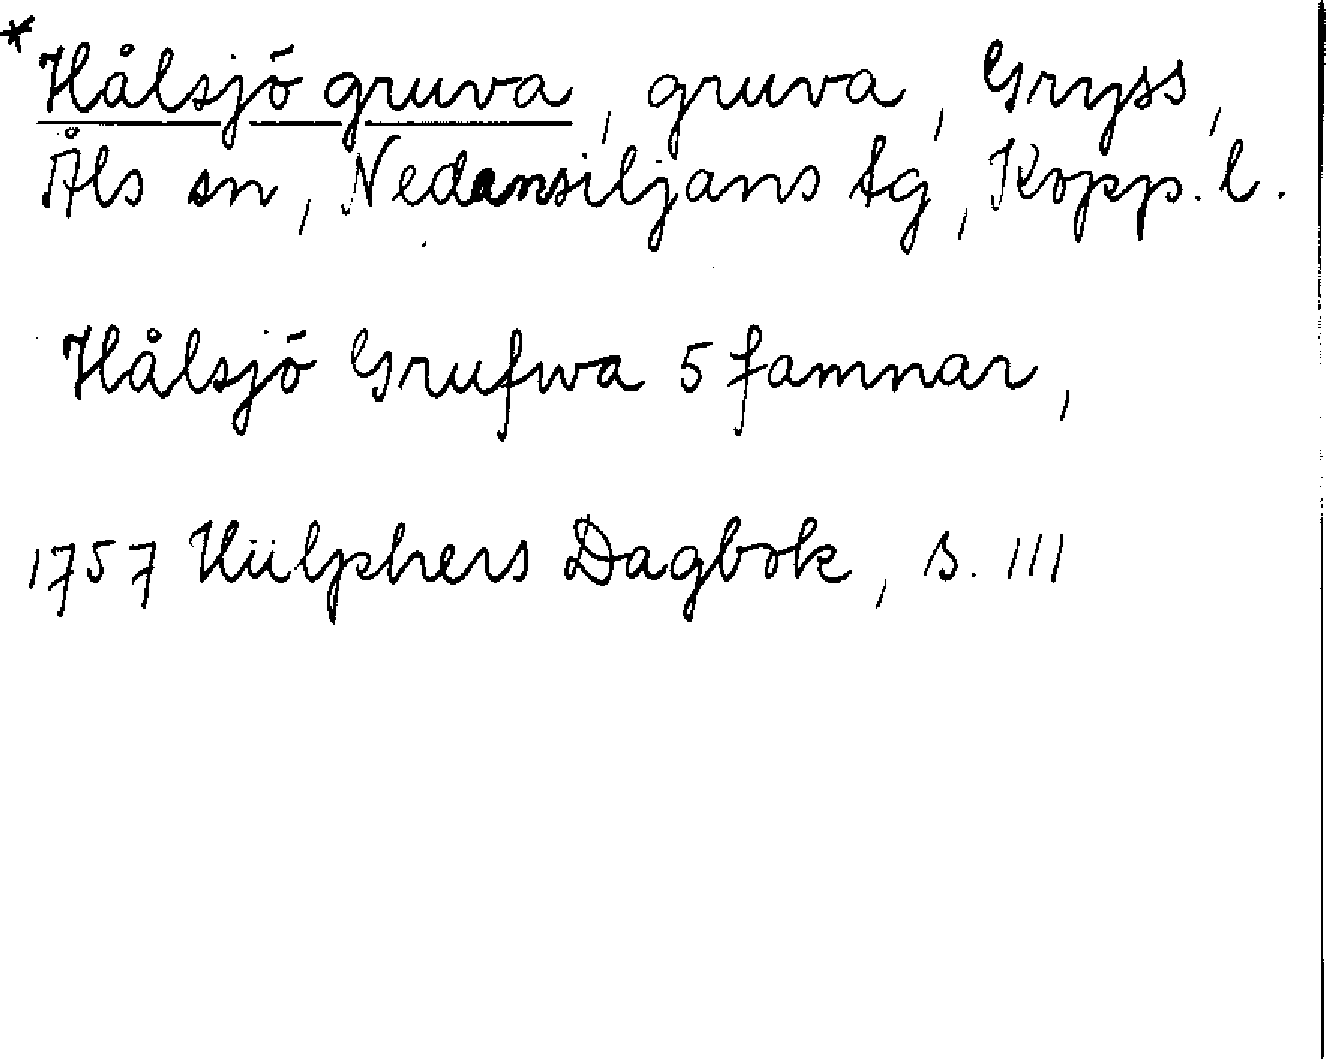 * Hålsjö gruva, gruva, Gryss,
Åls sn, Nedansiljans tg, Kopp. l.
Hålsjö Grufwa 5 famnar,
1757 Hülphers Dagbok, s. 111